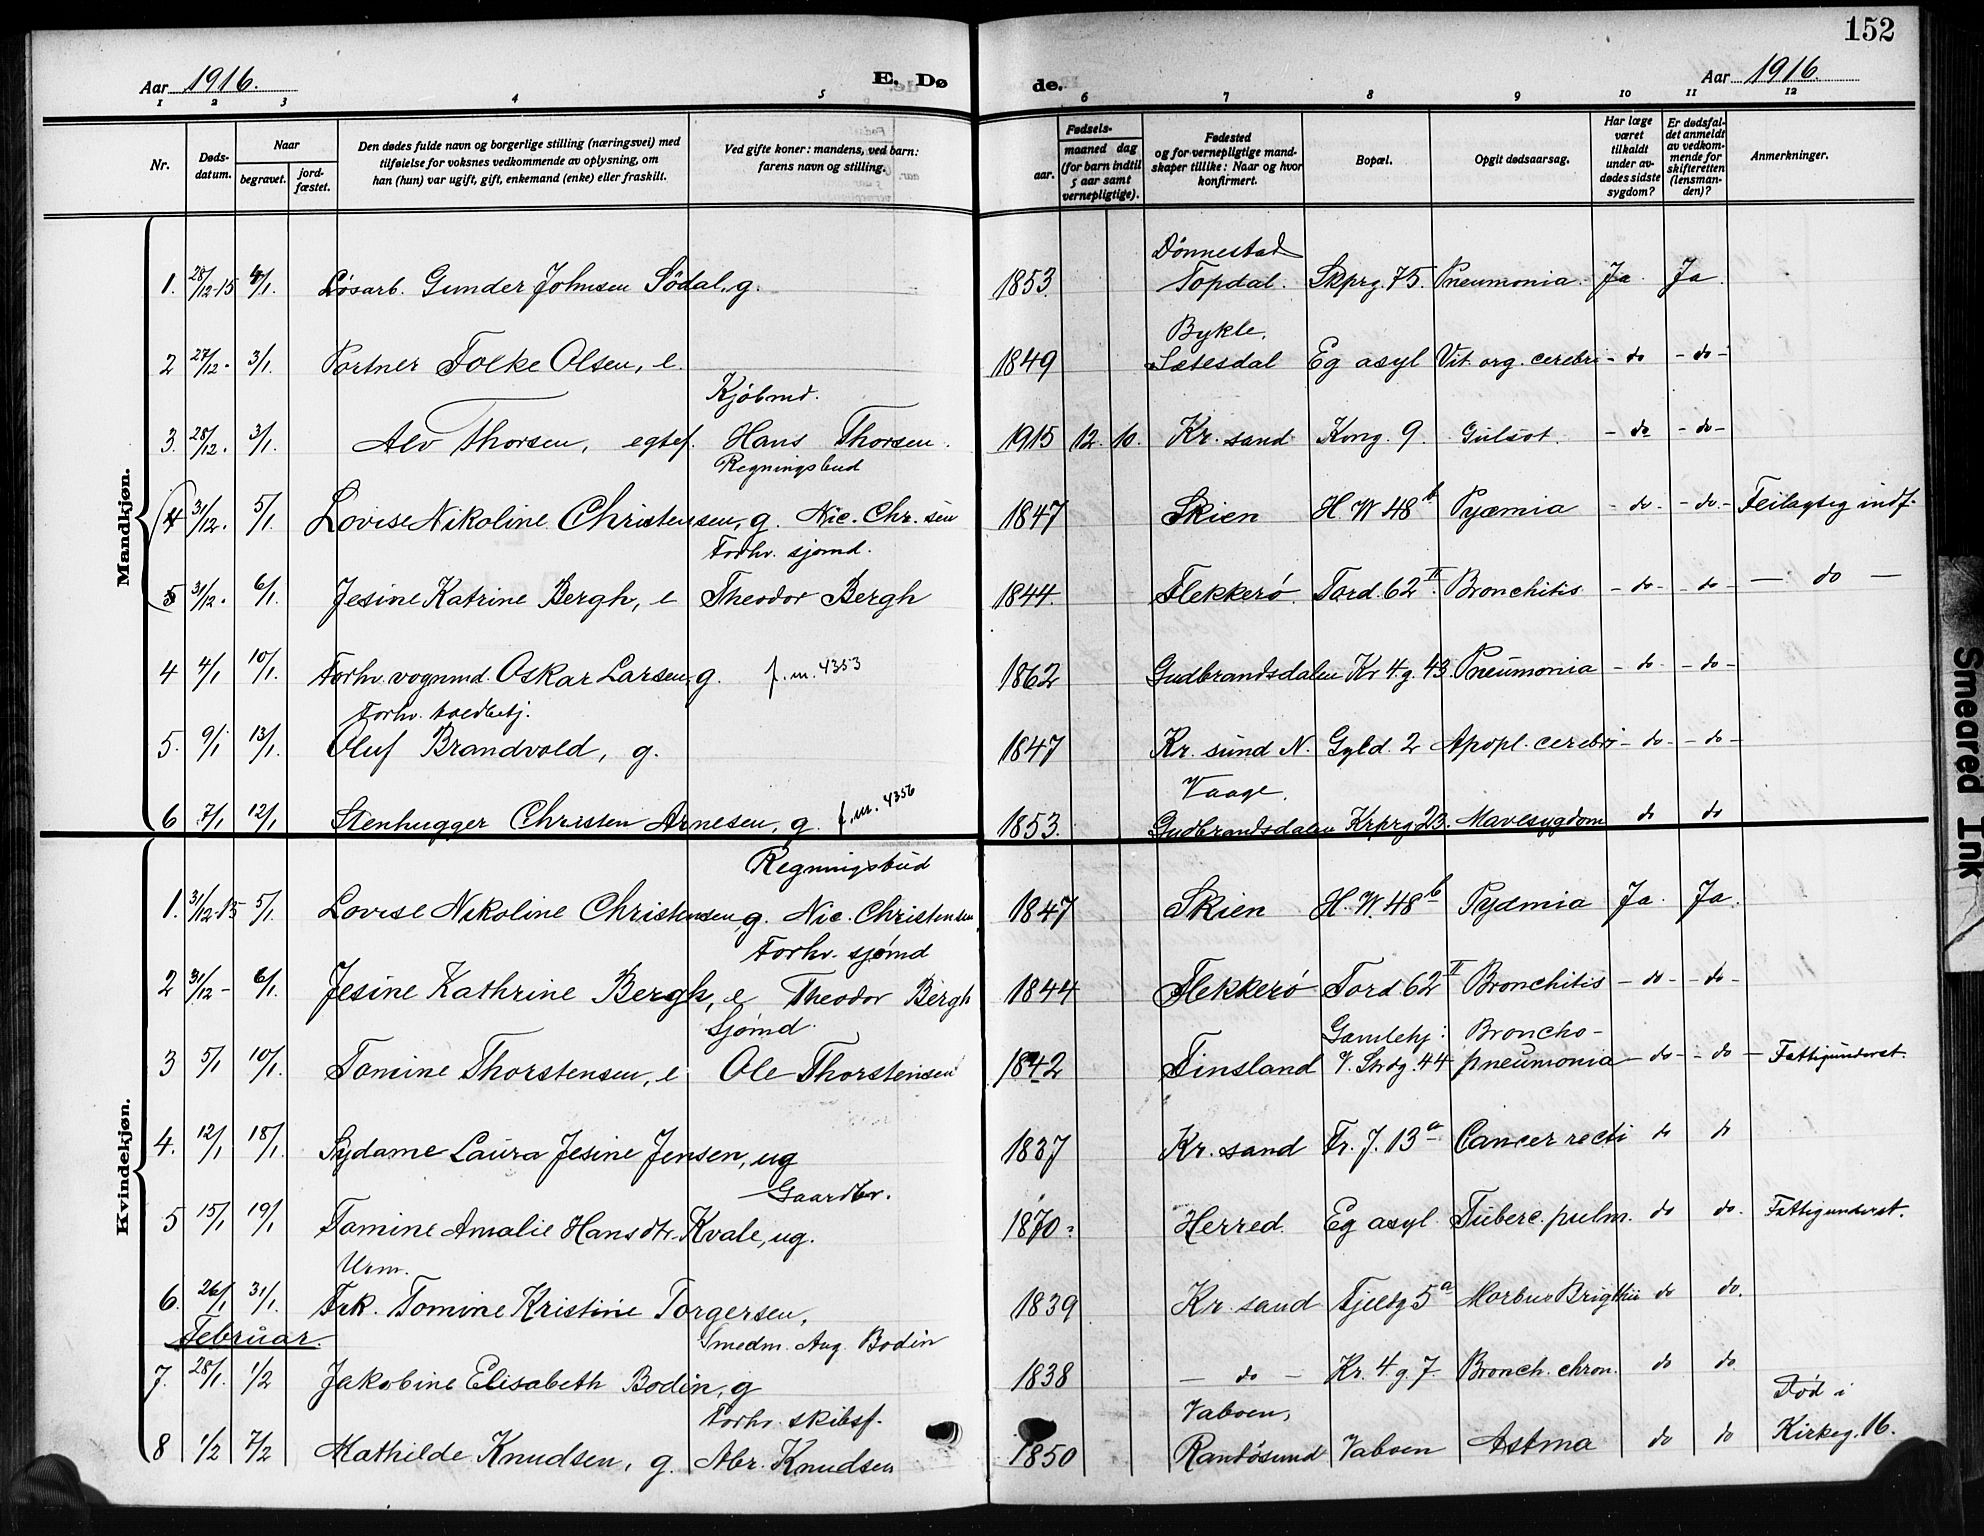 152
Aar 1916. E. Dø de. Aar 1916
1 2 3 4 5 6 7 8 9 10 11 12
Nr. Døds-datum. Naar begravet. jord-fæstet. Den dødes fulde navn og borgerlige stilling (næringsvei) med tilføielse for voksnes vedkommende av oplysning, om han (hun) var ugift, gift, enkemand (enke) eller fraskilt. Ved gifte koner: mandens, ved barn: farens navn og stilling. Fødsels- aar. maaned dag (for barn indtil 5 aar samt vernepligtige). Fødested og for vernepligtige mand-skaper tillike: Naar og hvor konfirmert. Bopæl. Opgit dødsaarsag. Har læge været tilkaldt under av-dødes sidste sygdom? Er dødsfal-det anmeldt av vedkom-mende for skifteretten (lensman-den)? Anmerkninger.
Mandkjøn.
Dønnestad
1. 28/12-15 4/1. Løsarb. Gunder Johnsen Södal, g. 1853. Topdal. Skprg. 75. Pneumonia. Ja. Ja.
Bykle,
2 27/12- 3/1. Portner Folke Olsen, e. 1849 Sætesdal Eg asyl Vit. org. cerebri - do - do -
Kjøbmd.
3. 28/12. 3/1. Alv Thorsen, egtef. Hans Thorsen. 1915 12. 10. Kr. sand Kong. 9. Gulsot. - do - do -
Regningsbud
4 31/12. 5/1. Lovise Nikoline Christensen, g. Nic. Chr. sen 1847 Skien H. W 48 b Pyæmia - do - - do - Feilagtig indf.
Forhv. sjømd.
5 31/12. 6/1. Jesine Katrine Bergh, e Theodor Bergh 1844. Flekkerø. Tord. 62 II. Bronchitis - do - - do - — do —
4 4/1 10/1. Forhv. vognmd. Oskar Larsen, g. f. m. 4353 1862 Gudbrandsdalen Kr 4. g. 43. Pneumonia - do - - do -
Forhv. toldbetj.
5. 9/1 13/1. Oluf Brandvold, g. 1847 Kr. sund N. Gyld. 2 Apopl. cerebri - do - - do -
Vaage,
6 7/1 12/1 Stenhugger Christen Arnesen, g. f. m. 4356 1853. Gudbrandsdalen Krprg 23. Mavesygdom do do
Kvindekjøn.
Regningsbud
1. 31/12-15 5/1. Lovise Nikoline Christensen, g. Nic. Christensen, 1847 Skien H. W. 48 b Pyæmia Ja. Ja.
Forhv. sjømd
2 31/12- 6/1. Jesine Kathrine Bergh, e Theodor Bergh 1844 Flekkerø Tord 62 II Bronchitis - do - - do -
Sjømd. Gamlehj: Broncho-
3 5/1 10/1. Tomine Thorstensen, e Ole Thorstensen 1842 Finsland V. Strdg. 44 pneumonia - do - - do - Fattigunderst.
4. 12/1 18/1. Sydame Laura Jesine Jensen, ug 1837 Kr. sand Fr. J. 13 a Cancer recti do do
Gaardbr.
5 15/1 19/1 Tomine Amalie Hansdtr. Kvale, ug. 1870. Herred. Eg asyl. Tuberc. pulm. do do. Fattigunderst.
Urm.
6. 26/1 31/1. Frk. Tomine Kristine Torgersen, 1839 Kr. sand Fjeldg 5 a Morbus Brigthii do do.
Februar. Smedm. Aug. Bodin
7. 28/1. 1/2 Jakobine Elisabeth Bodin, g 1838 — do — Kr. 4. g 7. Bronch. chron. do do
Forhv. skibsf. Vaboen, Død i
8 1/2 7/2 Mathilde Knudsen, g. Abr. Knudsen 1850 Randøsund Vaboen Astma do do Kirkeg. 16.
Smeared Ink